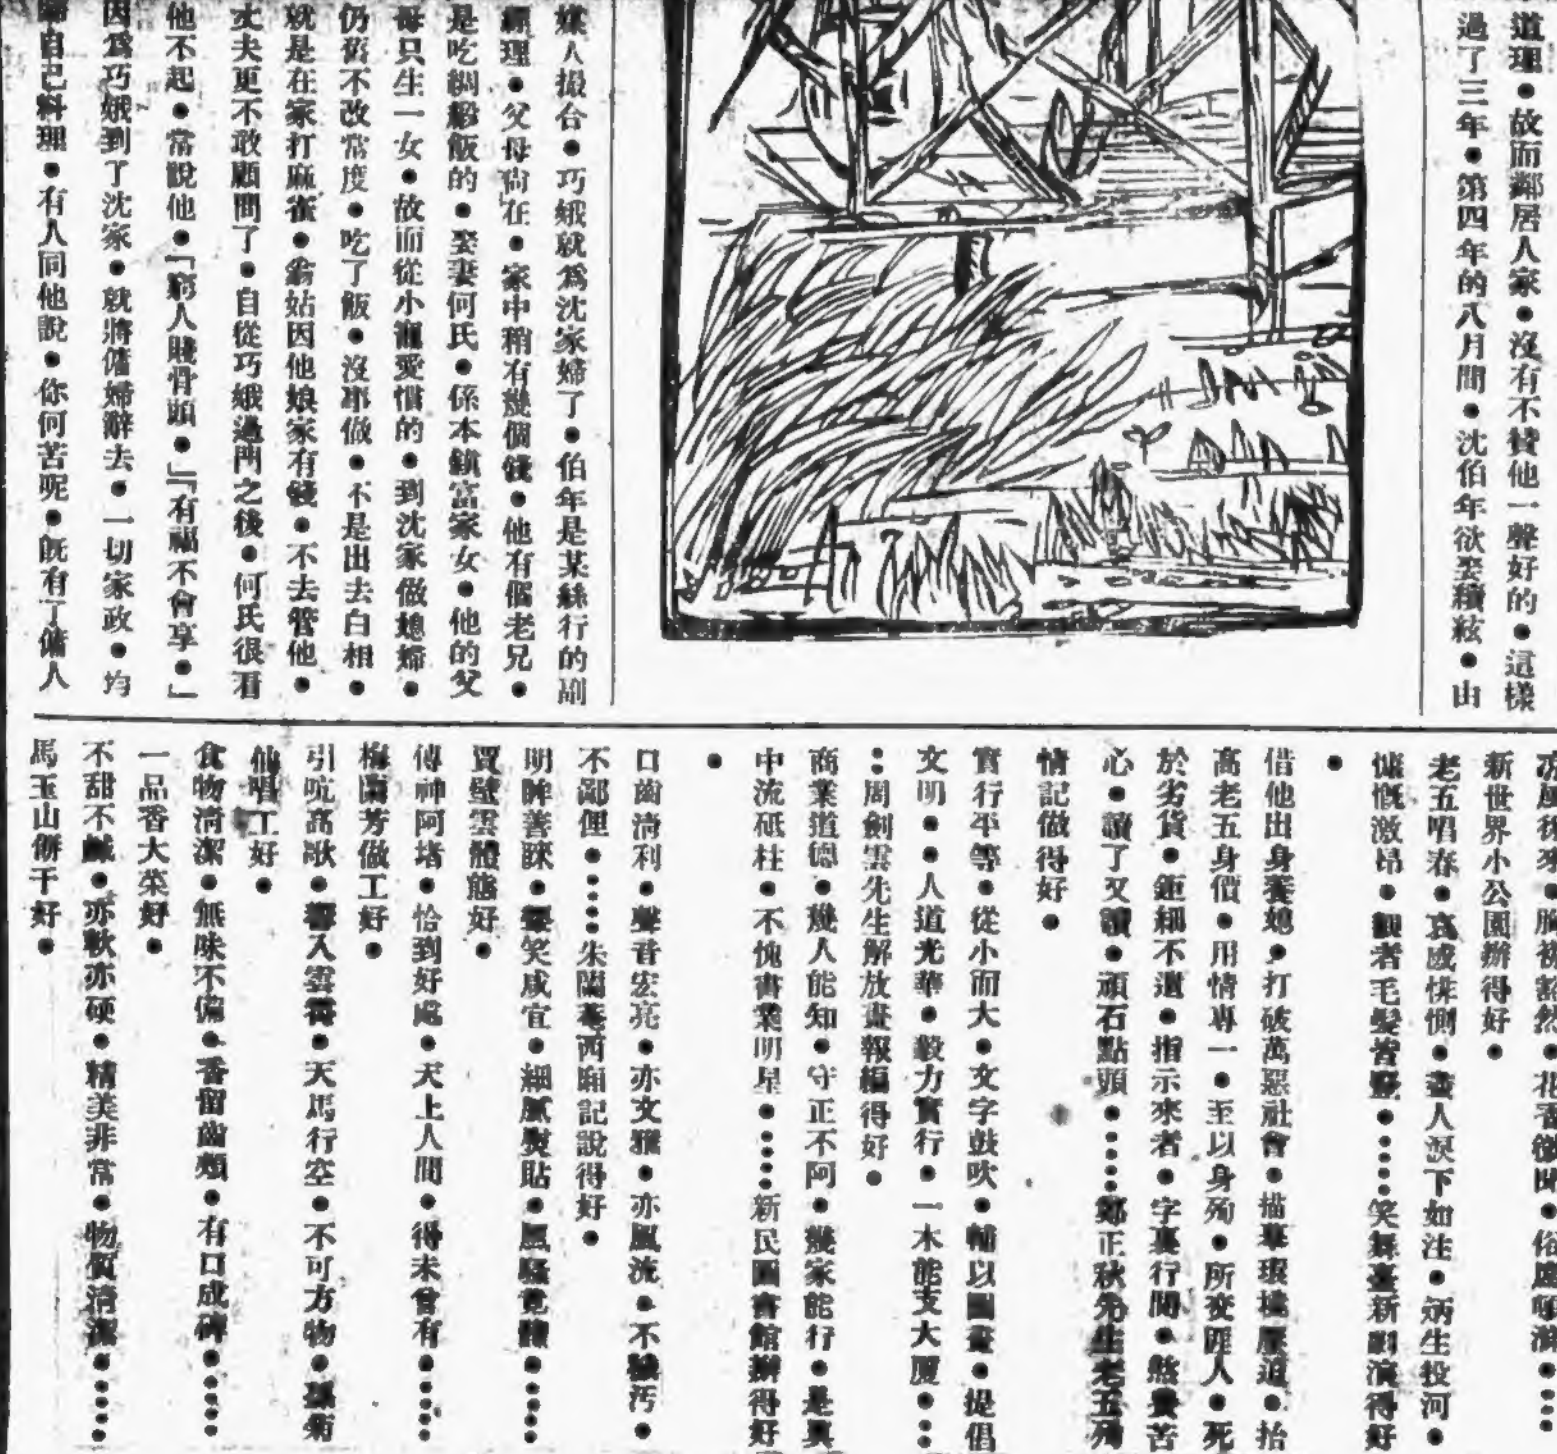 道理●故而鄰居人家●沒有不贊他一聲好的●這樣
過了三年●第四年的八月間●沈伯年欲娶續絃●由
媒人撮合●巧娥就爲沈家婦了●伯年是某絲行的副
經理●父母尙在●家中稍有幾個錢●他有個老兄●
是吃綢緞飯的●娶妻何氏●係本鎮富家女●他的父
母只生一女●故而從小寵愛慣的●到沈家做媳婦●
仍舊不改常度●吃了飯●沒事做●不是出去白相●
就是在家打麻雀●翁姑因他娘家有錢●不去管他●
丈夫更不敢顧問了●自從巧娥過門之後●何氏很看
他不起●常說他●「窮人賤骨頭●」「有福不會享●」
因爲巧娥到了沈家●就將傭婦辭去●一切家政●均
歸自己料理●有人同他說●你何苦呢●旣有了傭人
新世界小公園辦得好●
老五唱春●哀感悱惻●畫人淚下如注●病生投河●
慷慨激昂●觀者毛髮皆豎●●●●●笑舞臺新劇演得好
●
借他出身養媳●打破萬惡社會●描摹環境壓迫●抬
高老五身價●用情專一●至以身殉●所交匪人●死
於劣貨●鉅細不遺●指示來者●字裏行間●煞費苦
心●讀了又讀●頑石點頭●●●●●鄭正秋先生老五殉
情記做得好●
實行平等●從小而大●文字鼓吹●輔以圖畫●提倡
文明●●人道光華●毅力實行●一木能支大廈●●●
●●周劍雲先生解放畫報編得好●
商業道德●幾人能知●守正不阿●幾家能行●是眞
中流砥柱●不愧書業明星●●●●●新民圖書館辦得好
●
口齒清利●聲音宏亮●亦文雅●亦風流●不穢污●
不鄙俚●●●●●朱蘭菴西廂記說得好●
明眸善睞●顰笑咸宜●細膩熨貼●風騷●●●●●
賈璧雲體態好●
傳神阿堵●恰到好處●天上人間●得未曾有●●●●●
梅蘭芳做工好●
引吭高歌●響入雲霄●天馬行空●不可方物●
仙唱工好●
食物清潔●無味不備●香留齒頰●有口成碑●●●●●
一品香大菜好●
不甜不鹹●亦軟亦硬●精美非常●物質清潔●●●●●
馬玉山餅干好●